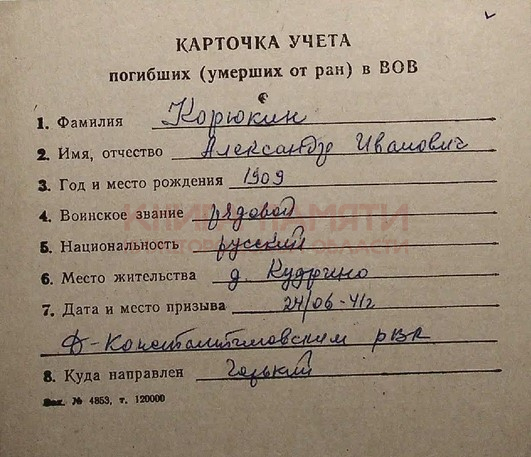 КАРТОЧКА УЧЕТА
погибших (умерших от ран) в ВОВ
1. Фамилия Корюкин
2. Имя, отчество Александр Иванович
3. Год и место рождения 1909
4. Воинское звание рядовой
КНИГА ПАМЯТИ
5. Национальность русский
ОБЛАСТИ
6. Место жительства д. Кудрино
7. Дата и место призыва 24/06-41г
Д-Константиновским РВК
8. Куда направлен Горький
Зак. № 4853, т. 120000